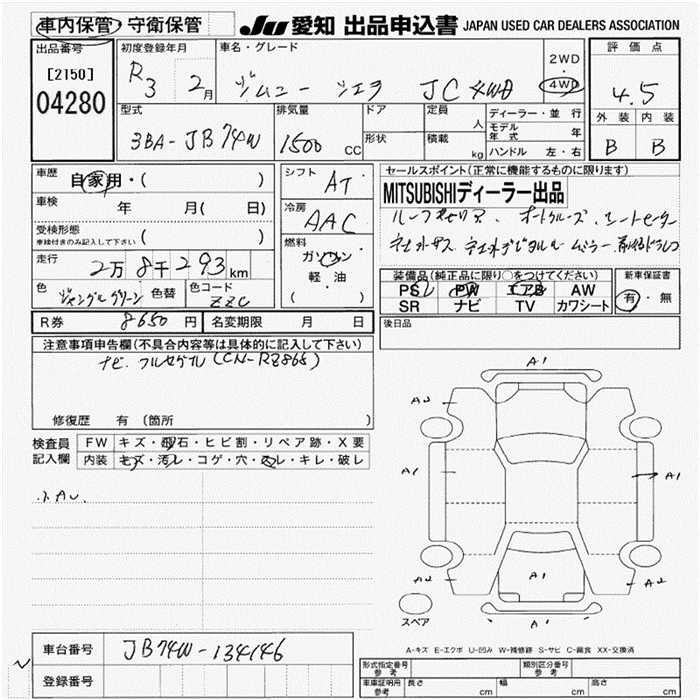 車内保管・守衛保管
JU 愛知 出品申込書 JAPAN USED CAR DEALERS ASSOCIATION
出品番号 初度登録年月 車名・グレード 2WD・4WD 評価点
[2150]
04280
R3 2月 ジムニー シエラ JC 4WD 4.5
型式 排気量 ドア 定員 人 ディーラー・並行 外装 内装
3BA-JB74W 1500 CC 形状 積載 kg モデル年式 年 B B
ハンドル 左・右
車歴 自家用・( ) シフト AT セールスポイント(正常に機能するものに限ります)
車検 年 月( 日) 冷房 AAC MITSUBISHIディーラー出品
受検形態
車検付きのみ記入して下さい ( )
燃料 ガソリン 軽・油 ( )
走行 2万8千293km
装備品(純正品に限り○をつけてください) 新車保証書
PS PW AB AW 有・無
SR ナビ TV カワシート
色 ジャングルグリーン 色替 色コード ZZC
R券 8650円 名変期限 月 日 後日品
注意事項申告欄(不具合内容等は具体的に記入して下さい)
ナビ フルセグル(CN-RZ866)
修復歴 有(箇所 )
検査員記入欄 FW キズ・飛石・ヒビ割・リペア跡・X要
内装 キズ・汚レ・コゲ・穴・スレ・キレ・破レ
A1
A2
A1
A1
A2 A1 A2
スペア A1
A-キズ E-エクボ U-凹み W-補修跡 S-サビ C-腐食 XX-交換済
車台番号 JB74W-134146
登録番号
形式指定番号 参考 類別区分番号 参考
車庫証明用 参考 長さ cm 幅 cm 高さ cm